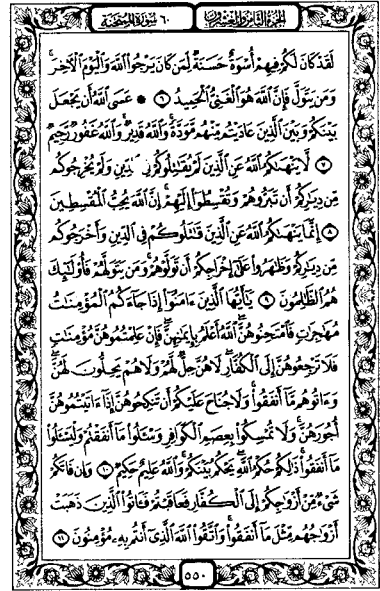 الجزء الثامن والعشرون ٦٠ سورة الممتحنة
لَقَدْ كَانَ لَكُمْ فِيهِمْ أُسْوَةٌ حَسَنَةٌ لِّمَن كَانَ يَرْجُوا۟ ٱللَّهَ وَٱلْيَوْمَ ٱلْـَٔاخِرَ ۚ
وَمَن يَتَوَلَّ فَإِنَّ ٱللَّهَ هُوَ ٱلْغَنِىُّ ٱلْحَمِيدُ ٦ ۞ عَسَى ٱللَّهُ أَن يَجْعَلَ
بَيْنَكُمْ وَبَيْنَ ٱلَّذِينَ عَادَيْتُم مِّنْهُم مَّوَدَّةً ۚ وَٱللَّهُ قَدِيرٌ ۚ وَٱللَّهُ غَفُورٌ رَّحِيمٌ
٧ لَّا يَنْهَىٰكُمُ ٱللَّهُ عَنِ ٱلَّذِينَ لَمْ يُقَٰتِلُوكُمْ فِى ٱلدِّينِ وَلَمْ يُخْرِجُوكُم
مِّن دِيَٰرِكُمْ أَن تَبَرُّوهُمْ وَتُقْسِطُوٓا۟ إِلَيْهِمْ ۚ إِنَّ ٱللَّهَ يُحِبُّ ٱلْمُقْسِطِينَ
٨ إِنَّمَا يَنْهَىٰكُمُ ٱللَّهُ عَنِ ٱلَّذِينَ قَٰتَلُوكُمْ فِى ٱلدِّينِ وَأَخْرَجُوكُم
مِّن دِيَٰرِكُمْ وَظَٰهَرُوا۟ عَلَىٰٓ إِخْرَاجِكُمْ أَن تَوَلَّوْهُمْ ۚ وَمَن يَتَوَلَّهُمْ فَأُو۟لَٰٓئِكَ
هُمُ ٱلظَّٰلِمُونَ ٩ يَٰٓأَيُّهَا ٱلَّذِينَ ءَامَنُوٓا۟ إِذَا جَآءَكُمُ ٱلْمُؤْمِنَٰتُ
مُهَٰجِرَٰتٍ فَٱمْتَحِنُوهُنَّ ۖ ٱللَّهُ أَعْلَمُ بِإِيمَٰنِهِنَّ ۖ فَإِنْ عَلِمْتُمُوهُنَّ مُؤْمِنَٰتٍ
فَلَا تَرْجِعُوهُنَّ إِلَى ٱلْكُفَّارِ ۖ لَا هُنَّ حِلٌّ لَّهُمْ وَلَا هُمْ يَحِلُّونَ لَهُنَّ ۖ
وَءَاتُوهُم مَّآ أَنفَقُوا۟ ۚ وَلَا جُنَاحَ عَلَيْكُمْ أَن تَنكِحُوهُنَّ إِذَآ ءَاتَيْتُمُوهُنَّ
أُجُورَهُنَّ ۚ وَلَا تُمْسِكُوا۟ بِعِصَمِ ٱلْكَوَافِرِ وَسْـَٔلُوا۟ مَآ أَنفَقْتُمْ وَلْيَسْـَٔلُوا۟
مَآ أَنفَقُوا۟ ۚ ذَٰلِكُمْ حُكْمُ ٱللَّهِ ۖ يَحْكُمُ بَيْنَكُمْ ۚ وَٱللَّهُ عَلِيمٌ حَكِيمٌ ١٠ وَإِن فَاتَكُمْ
شَىْءٌ مِّنْ أَزْوَٰجِكُمْ إِلَى ٱلْكُفَّارِ فَعَاقَبْتُمْ فَـَٔاتُوا۟ ٱلَّذِينَ ذَهَبَتْ
أَزْوَٰجُهُم مِّثْلَ مَآ أَنفَقُوا۟ ۚ وَٱتَّقُوا۟ ٱللَّهَ ٱلَّذِىٓ أَنتُم بِهِۦ مُؤْمِنُونَ ١١
٥٥٠